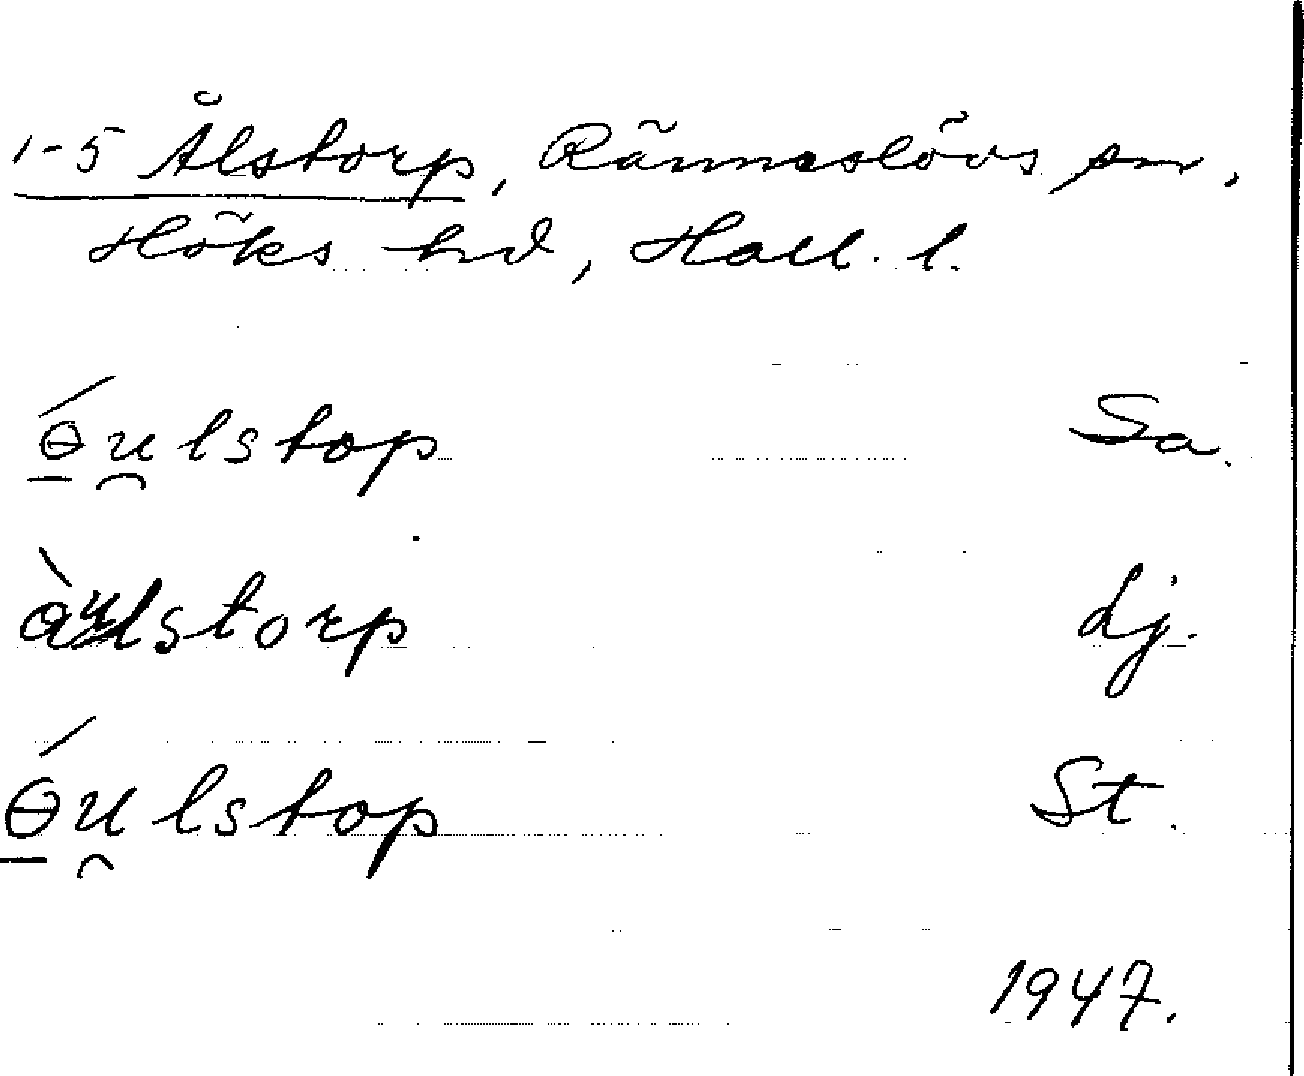 1-5 Ålstorp, Ränneslövs sn,
Höks hd, Hall. l.
ɵ́u̯lstop Sa.
àulstorp Lj.
ɵ́u̯lstop St.
1947.